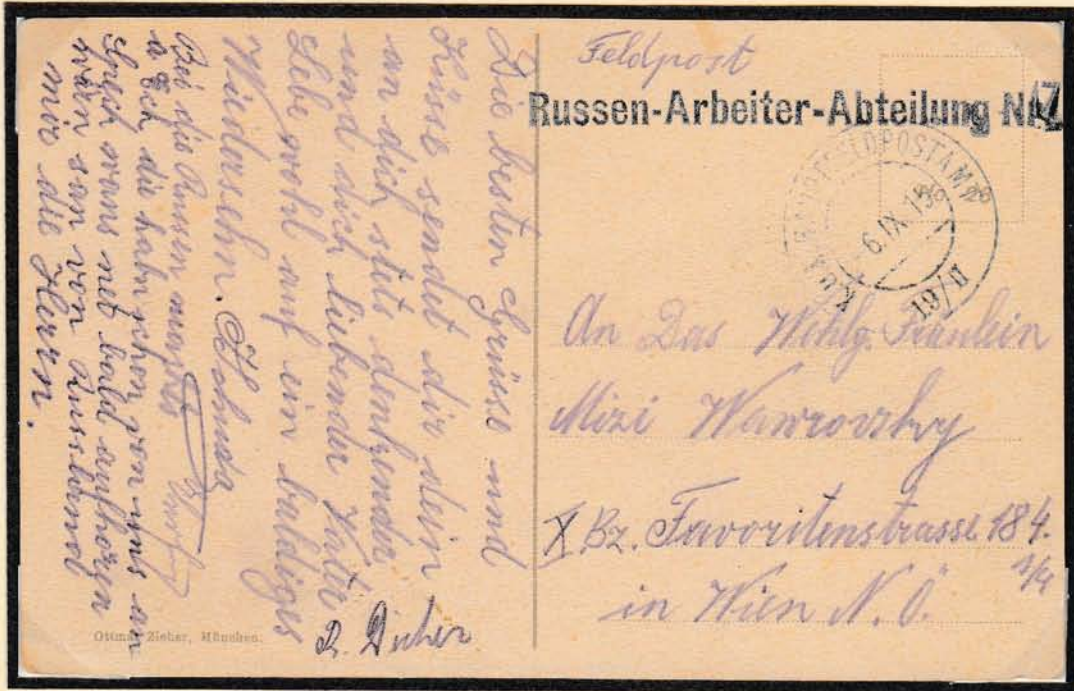 Feldpost
Russen-Arbeiter-Abteilung Nr. 17
K.U.K. HAUPTFELDPOSTAMT
6.IX.15
191/II
An Das Wohlg. Fräulein
Mizi Wawrovsky
X Bz. Favoritenstrasse 184.
in Wien N. Ö.
Die besten Grüsse und
Küsse sendet dir dein
an dich stets denkender
und dich liebender Vater
Lebe wohl auf ein baldiges
Wiedersehn.
Bei die Russen
a Ech die habn schon von uns an
Speck wans net bald aufhörgn
von Russland
mir die Herrn.
Ottmar Zieher, München.